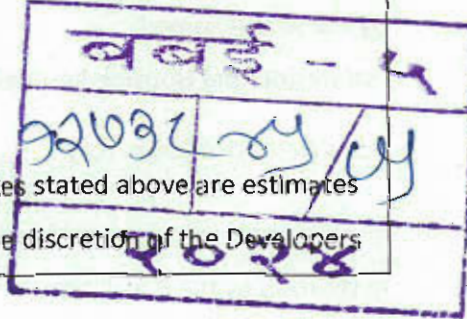 बबई - ५
१२७३८ / ७५
es stated above are estimates
e discretion of the Developers
२०२४